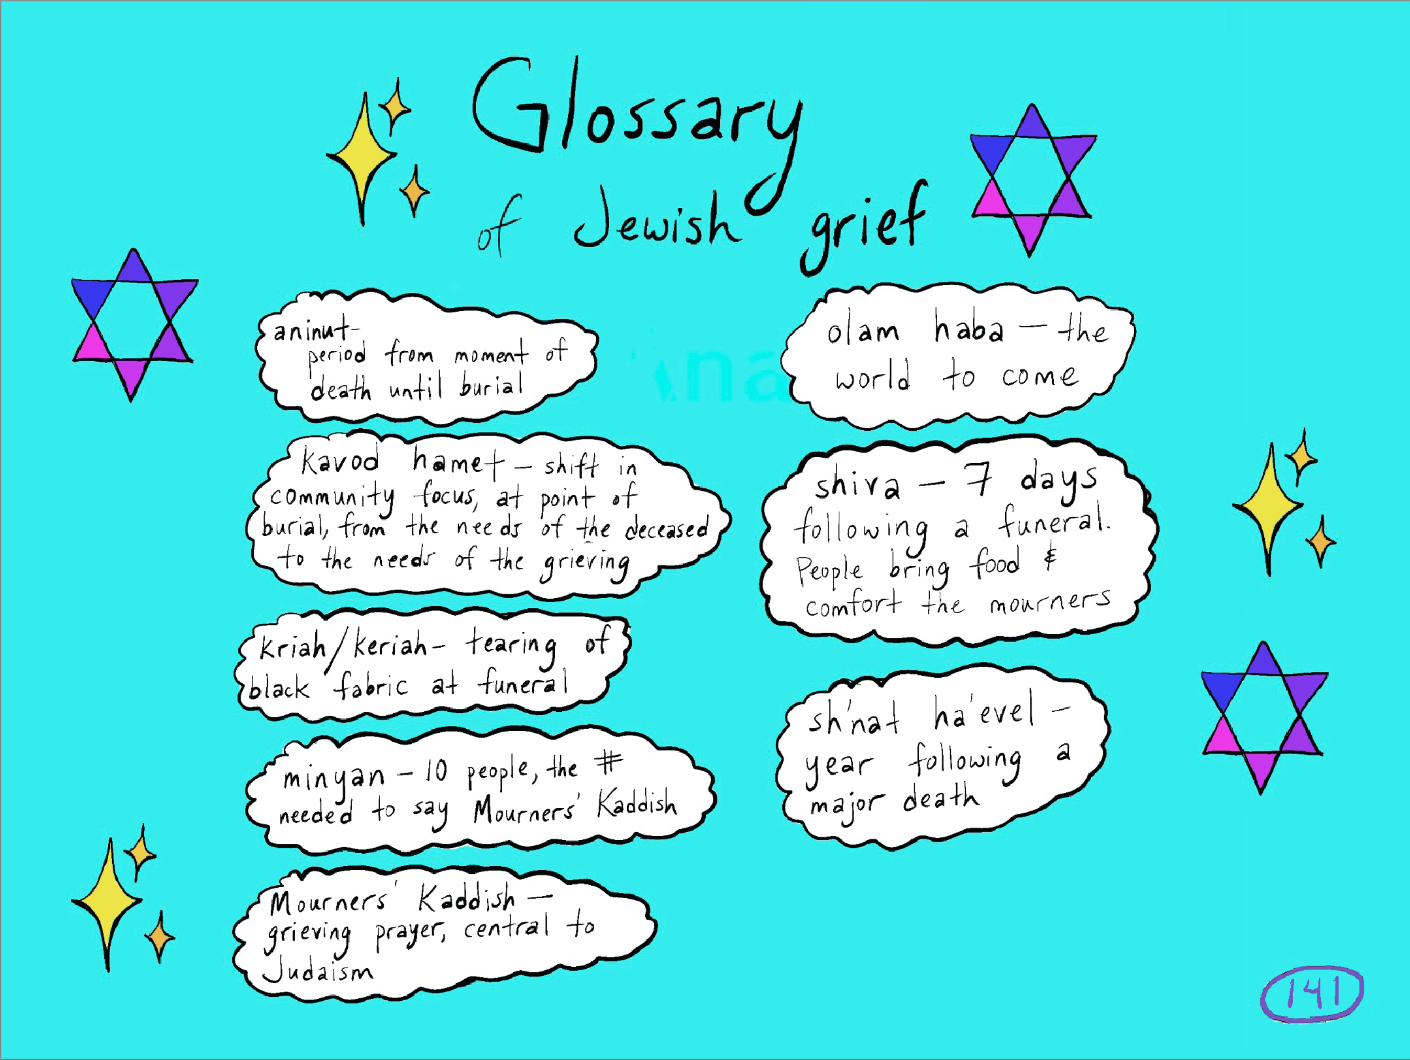 Glossary
of Jewish grief
aninut-
period from moment of
death until burial
Kavod hamet - shift in
community focus, at point of
burial, from the needs of the deceased
to the needs of the grieving
kriah/keriah- tearing of
black fabric at funeral
minyan - 10 people, the #
needed to say Mourners' Kaddish
Mourners' Kaddish -
grieving prayer, central to
Judaism
olam haba - the
world to come
shiva - 7 days
following a funeral.
People bring food &
comfort the mourners
sh'nat ha'evel -
year following a
major death
141